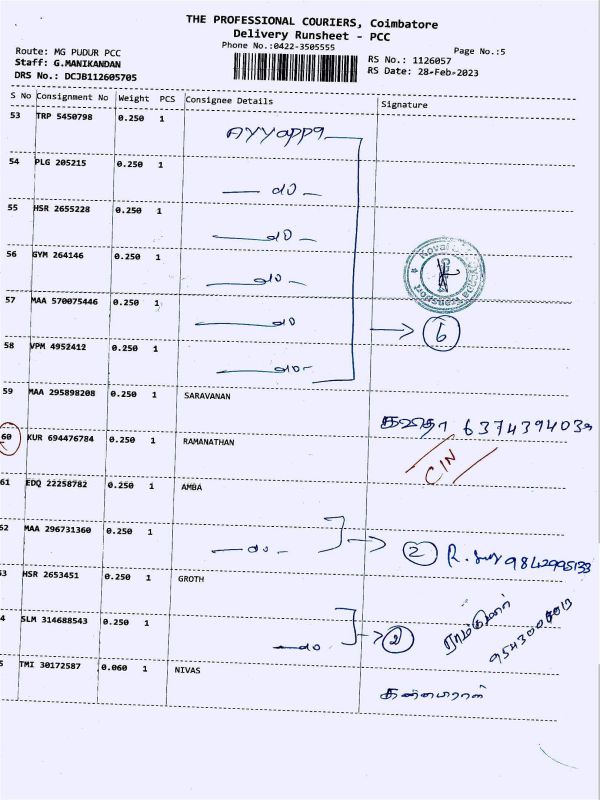 THE PROFESSIONAL COURIERS, Coimbatore
Delivery Runsheet - PCC
Phone No.:0422-3505555
Page No.:5
Route: MG PUDUR PCC
Staff: G.MANIKANDAN
DRS No.: DCJB112605705
RS No.: 1126057
RS Date: 28-Feb-2023
S No Consignment No Weight PCS Consignee Details Signature
53 TRP 5450798 0.250 1 Ayyappa
54 PLG 205215 0.250 1 — do —
55 HSR 2655228 0.250 1 — do —
56 GYM 264146 0.250 1 — do —
57 MAA 570075446 0.250 1 — do → 6
58 VPM 4952412 0.250 1 — do -
59 MAA 295898208 0.250 1 SARAVANAN கவிதா 6374394039
60 KUR 694476784 0.250 1 RAMANATHAN CIN
61 EDQ 22258782 0.250 1 AMBA
62 MAA 296731360 0.250 1 — do - → 2 R. 9842995133
3 HSR 2653451 0.250 1 GROTH
4 SLM 314688543 0.250 1 — do → 2
5 TMI 30172587 0.060 1 NIVAS